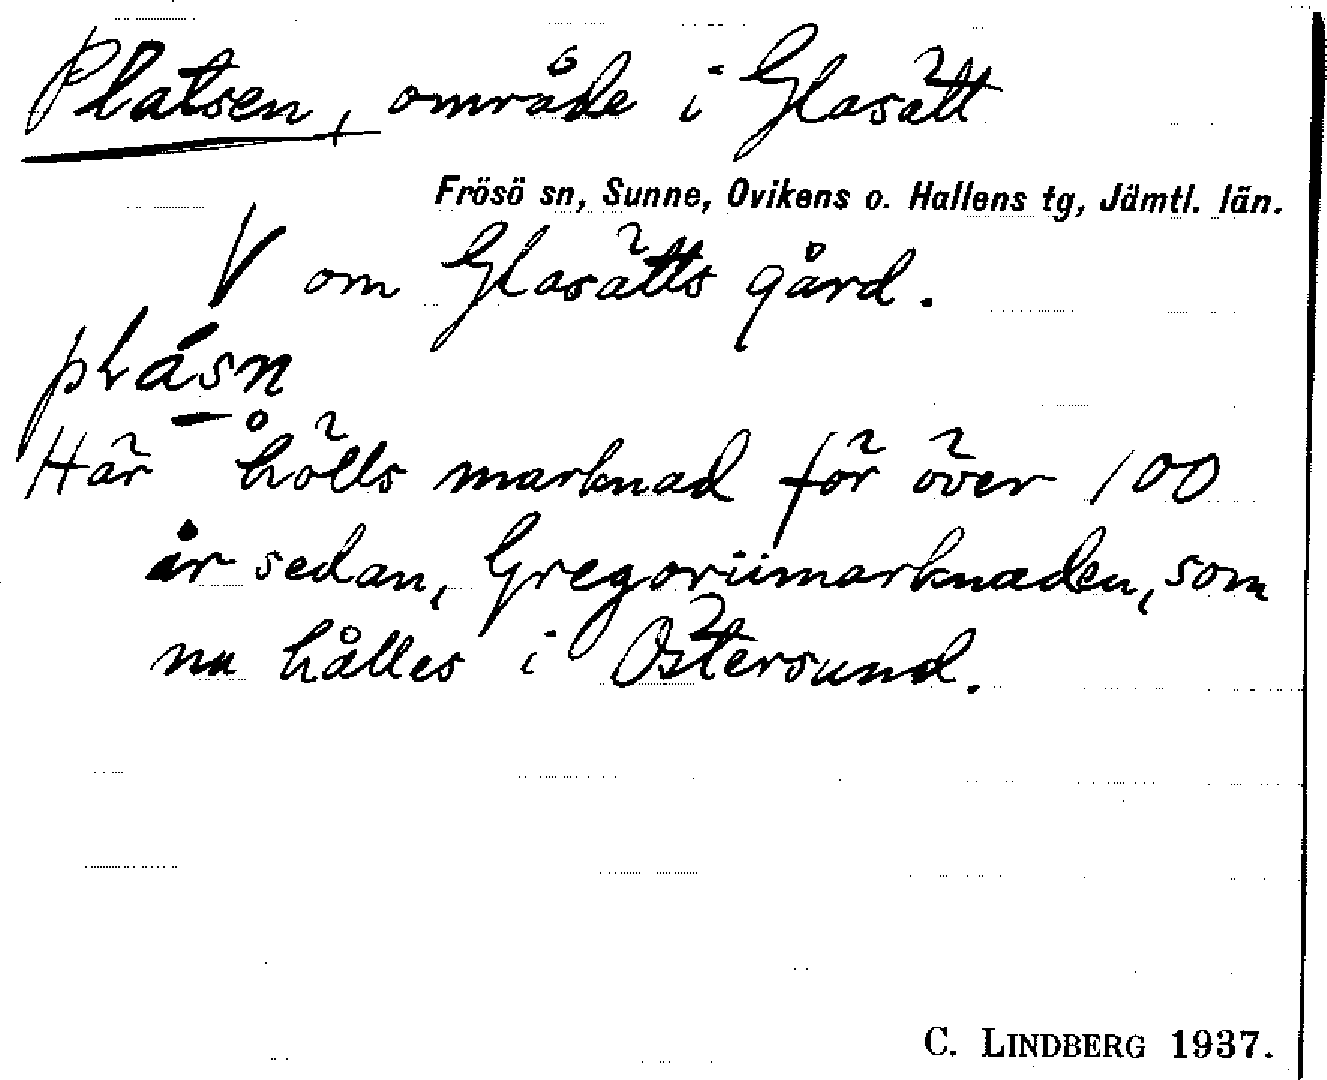 Platsen, område i Glasätt
Frösö sn, Sunne, Ovikens o. Hallens tg, Jämtl. län.
V om Glasätts gård.
plásn
Här hölls marknad för över 100
år sedan, Gregoriimarknaden, som
nu hålles i Östersund.
C. LINDBERG 1937.